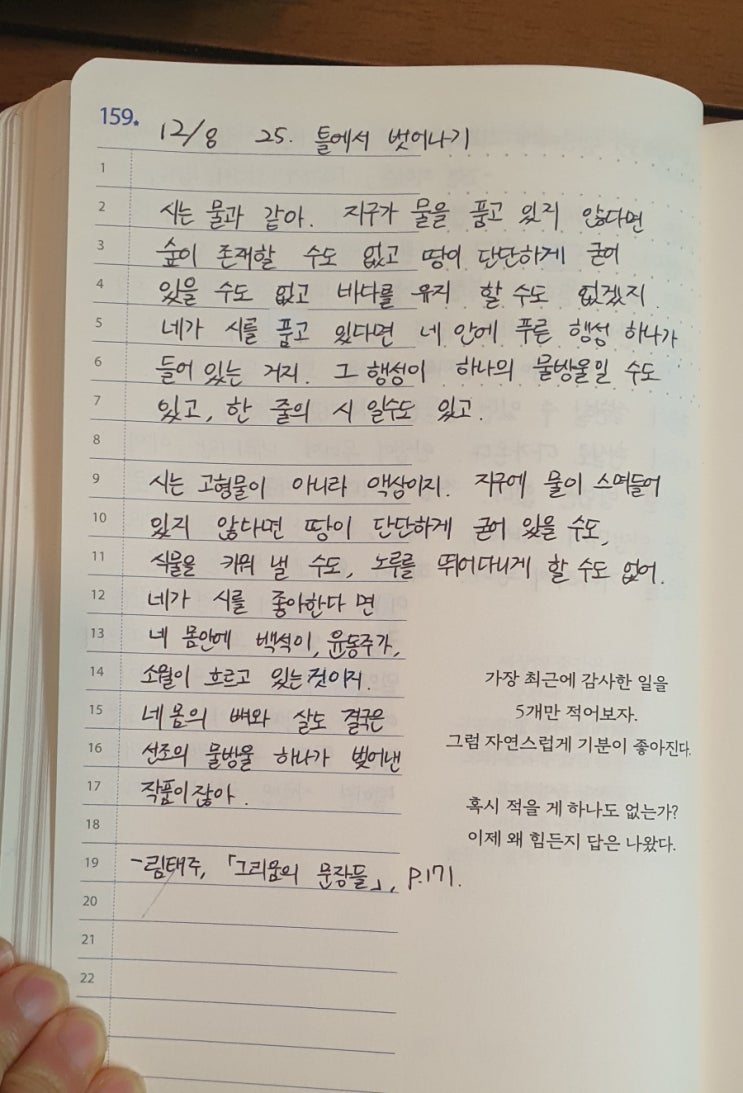 159.
12/8 25. 틀에서 벗어나기
1
2 시는 물과 같아. 지구가 물을 품고 있지 않다면
3 숲이 존재할 수도 없고 땅이 단단하게 굳어
4 있을 수도 없고 바다를 유지 할 수도 없겠지
5 네가 시를 품고 있다면 네 안에 푸른 행성 하나가
6 들어 있는 거지. 그 행성이 하나의 물방울일 수도
7 있고, 한 줄의 시 일수도 있고.
8
9 시는 고형물이 아니라 액상이지. 지구에 물이 스며들어
10 있지 않다면 땅이 단단하게 굳어 있을 수도,
11 식물을 키워 낼 수도, 노루를 뛰어다니게 할 수도 없어.
12 네가 시를 좋아한다 면
13 네 몸안에 백석이, 윤동주가,
14 소월이 흐르고 있는것이지.
15 네 몸의 뼈와 살도 결국은
16 선조의 물방울 하나가 빚어낸
17 작품이잖아.
18
19 -림태주, 「그리움의 문장들」, P.171.
20
21
22
가장 최근에 감사한 일을
5개만 적어보자.
그럼 자연스럽게 기분이 좋아진다.
혹시 적을 게 하나도 없는가?
이제 왜 힘든지 답은 나왔다.